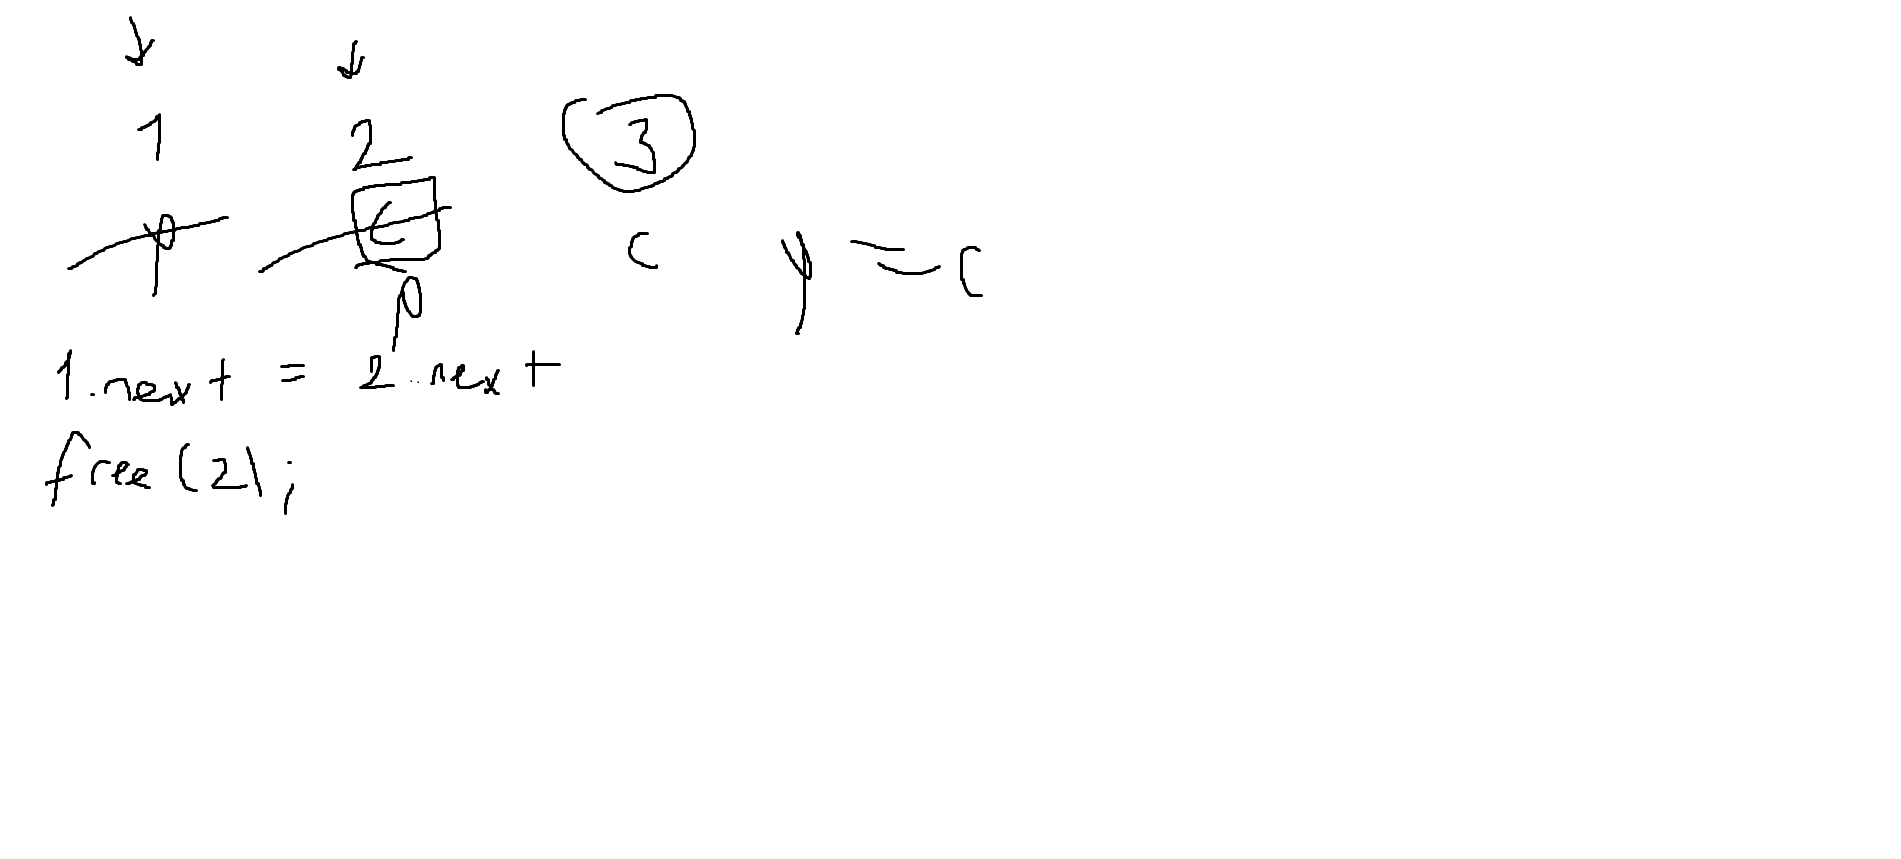 1 2 3
p c c p = c
p
1.next = 2.next
free(2);